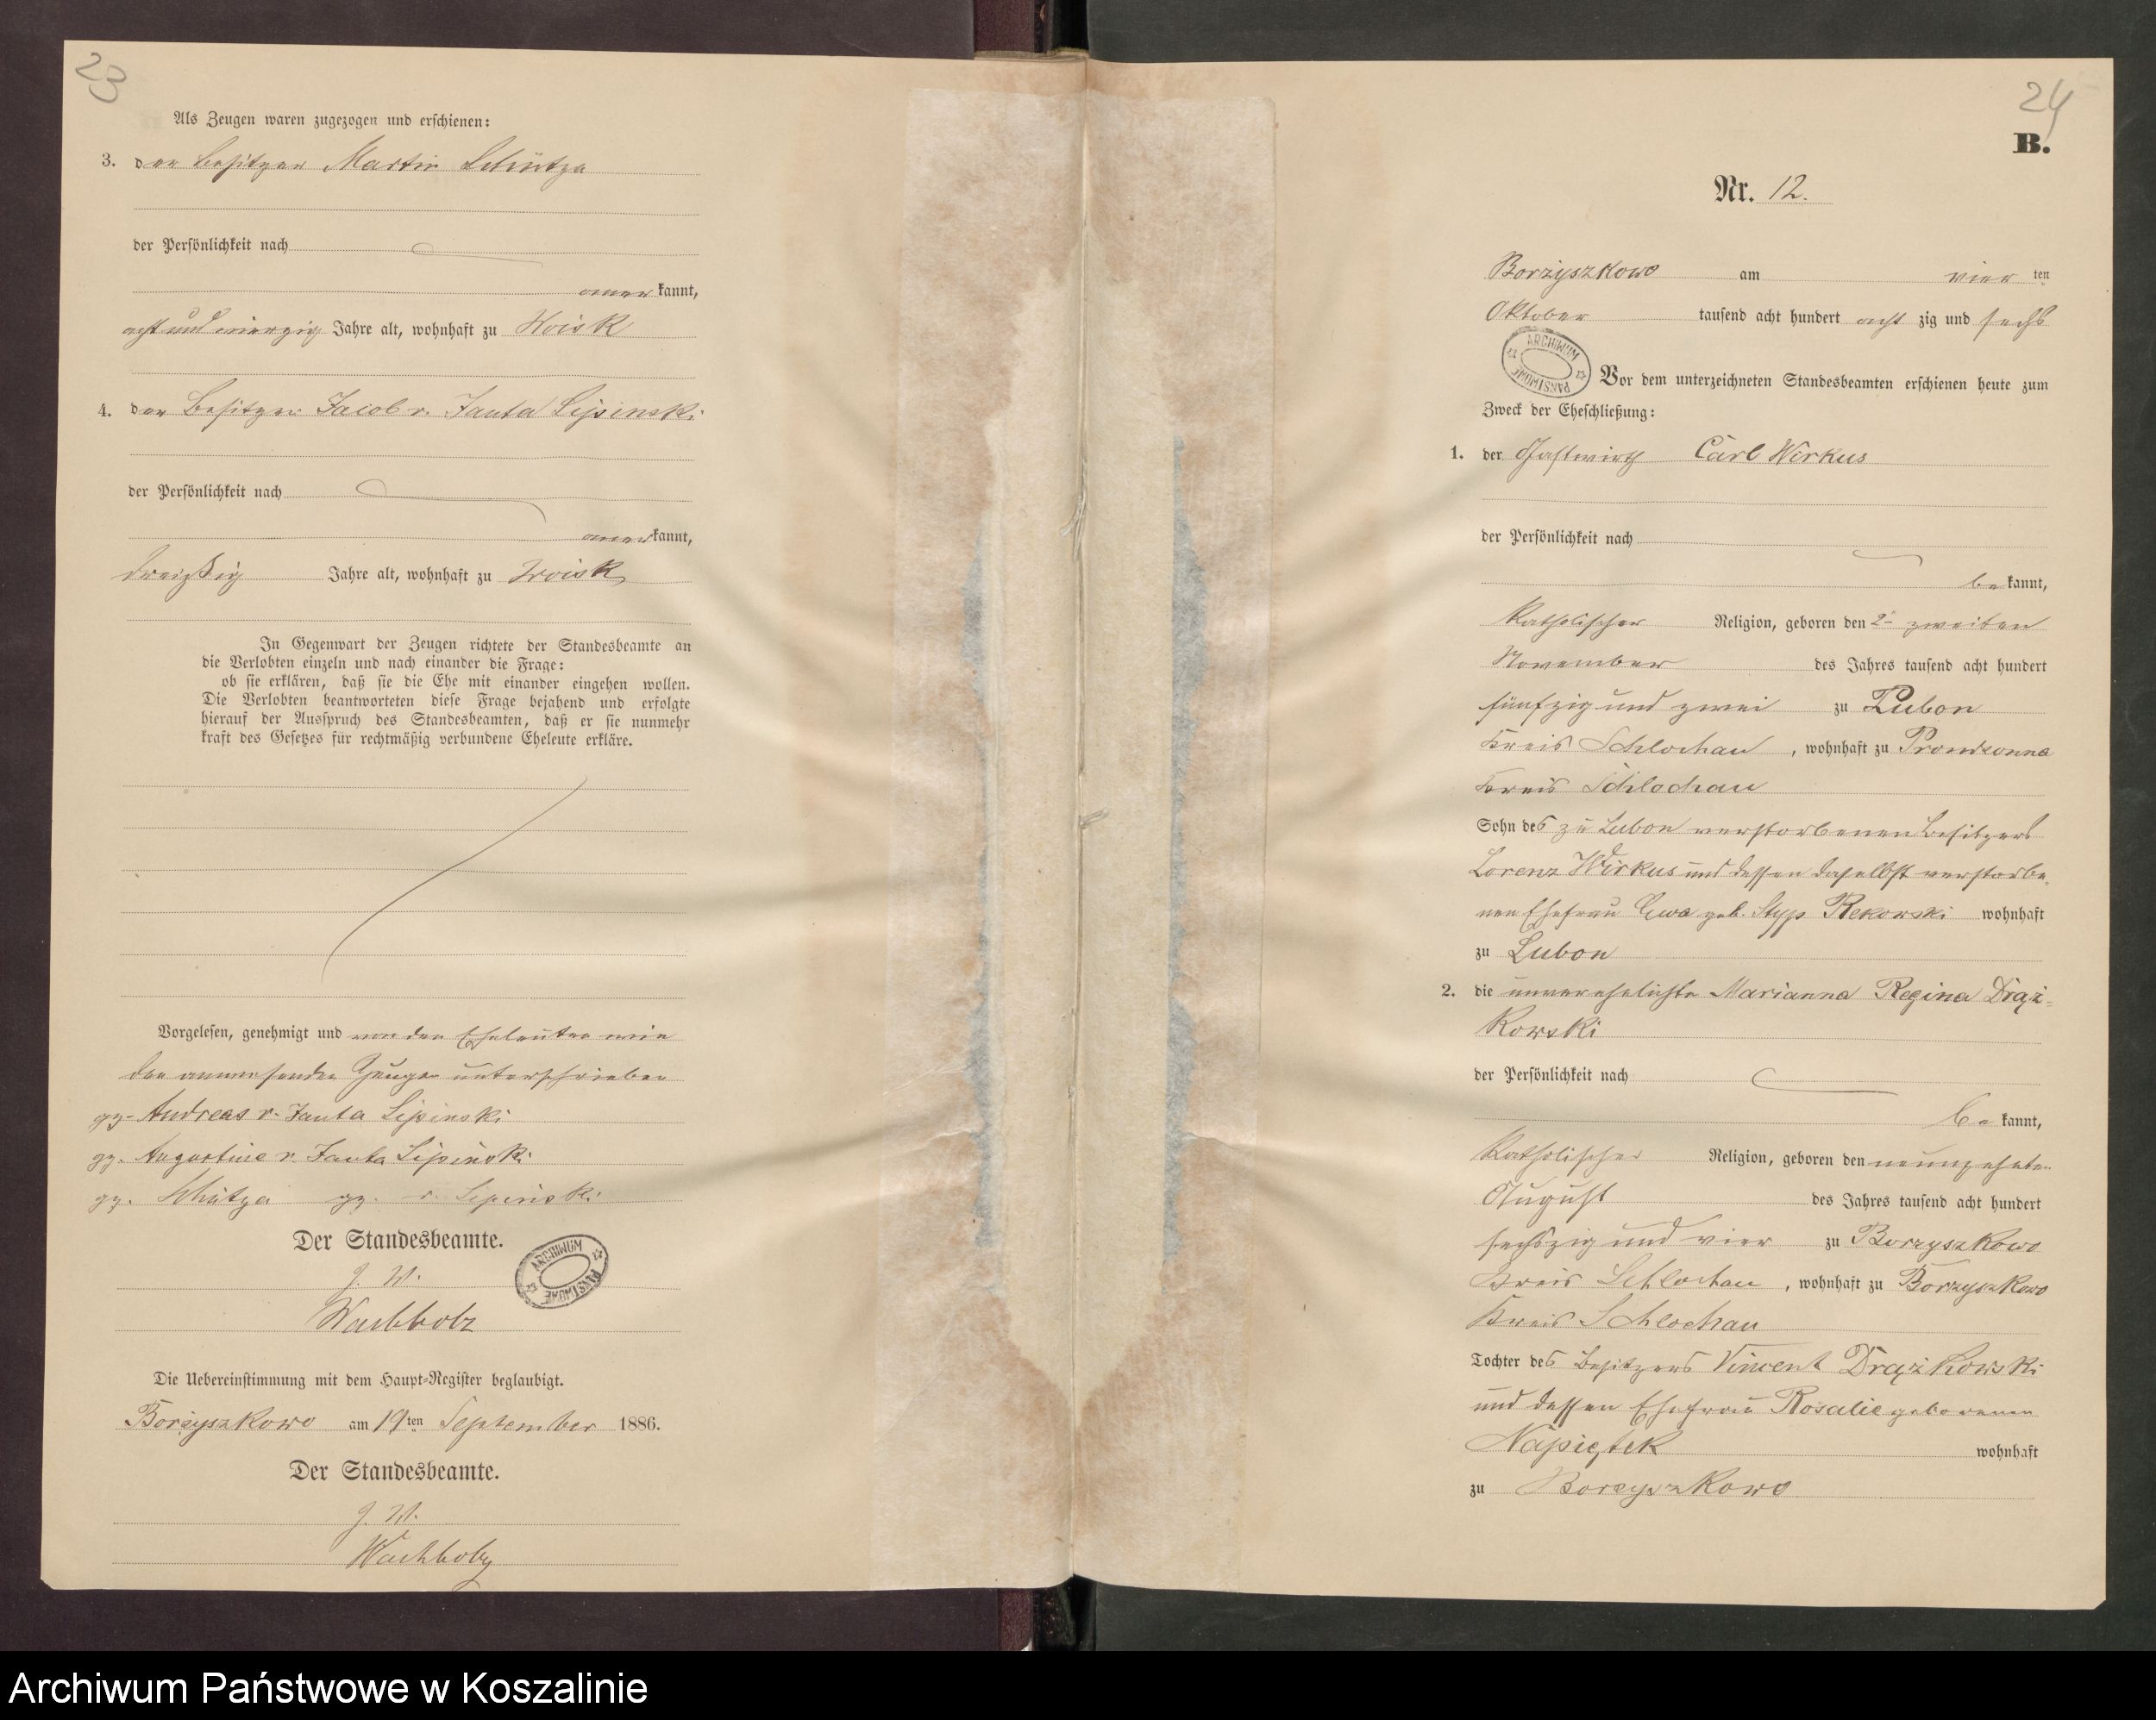 23
Als Zeugen waren zugezogen und erschienen:
3. der Besitzer Martin Schütza
der Persönlichkeit nach
aner kannt,
acht und vierzig Jahre alt, wohnhaft zu Woisk
4. der Besitzer Jacob v. Janta Lipinski
der Persönlichkeit nach
aner kannt,
dreißig Jahre alt, wohnhaft zu Woisk
In Gegenwart der Zeugen richtete der Standesbeamte an
die Verlobten einzeln und nach einander die Frage:
ob sie erklären, daß sie die Ehe mit einander eingehen wollen.
Die Verlobten beantworteten diese Frage bejahend und erfolgte
hierauf der Ausspruch des Standesbeamten, daß er sie nunmehr
kraft des Gesetzes für rechtmäßig verbundene Eheleute erkläre.
Vorgelesen, genehmigt und von den Eheleuten wie
den anwesenden Zeugen unterschrieben
gz. Andreas v. Janta Lipinski
gz. Augustine v. Janta Lipinski
gz. Schütza gz. v. Lipinski
Der Standesbeamte.
ARCHIWUM PAŃSTWOWE
J. V.
Wachholz
Die Uebereinstimmung mit dem Haupt-Register beglaubigt.
Borzyszkowo am 19ten September 1886.
Der Standesbeamte.
J. V.
Wachholz
24
B.
Nr. 12.
Borzyszkowo am vier ten
Oktober tausend acht hundert acht zig und sechs
ARCHIWUM PAŃSTWOWE
Vor dem unterzeichneten Standesbeamten erschienen heute zum
Zweck der Eheschließung:
1. der Gastwirth Carl Wirkus
der Persönlichkeit nach
be kannt,
katholischer Religion, geboren den 2ⁿ zweiten
November des Jahres tausend acht hundert
fünfzig und zwei zu Lubon
Kreis Schlochau, wohnhaft zu Prondzonna
Kreis Schlochau
Sohn des zu Lubon verstorbenen Besitzers
Lorenz Wirkus und dessen daselbst verstorbe
nen Ehefrau Ewa geb. Styp Rekowski wohnhaft
zu Lubon
2. die unverehelichte Marianna Regina Drąż-
kowski
der Persönlichkeit nach
be kannt,
katholischer Religion, geboren den neunzehnten
August des Jahres tausend acht hundert
sechszig und vier zu Borzyszkowo
Kreis Schlochau, wohnhaft zu Borzyszkowo
Kreis Schlochau
Tochter des Besitzers Vincent Drążkowski
und dessen Ehefrau Rosalie geborenen
Napiątek wohnhaft
zu Borzyszkowo
Archiwum Państwowe w Koszalinie